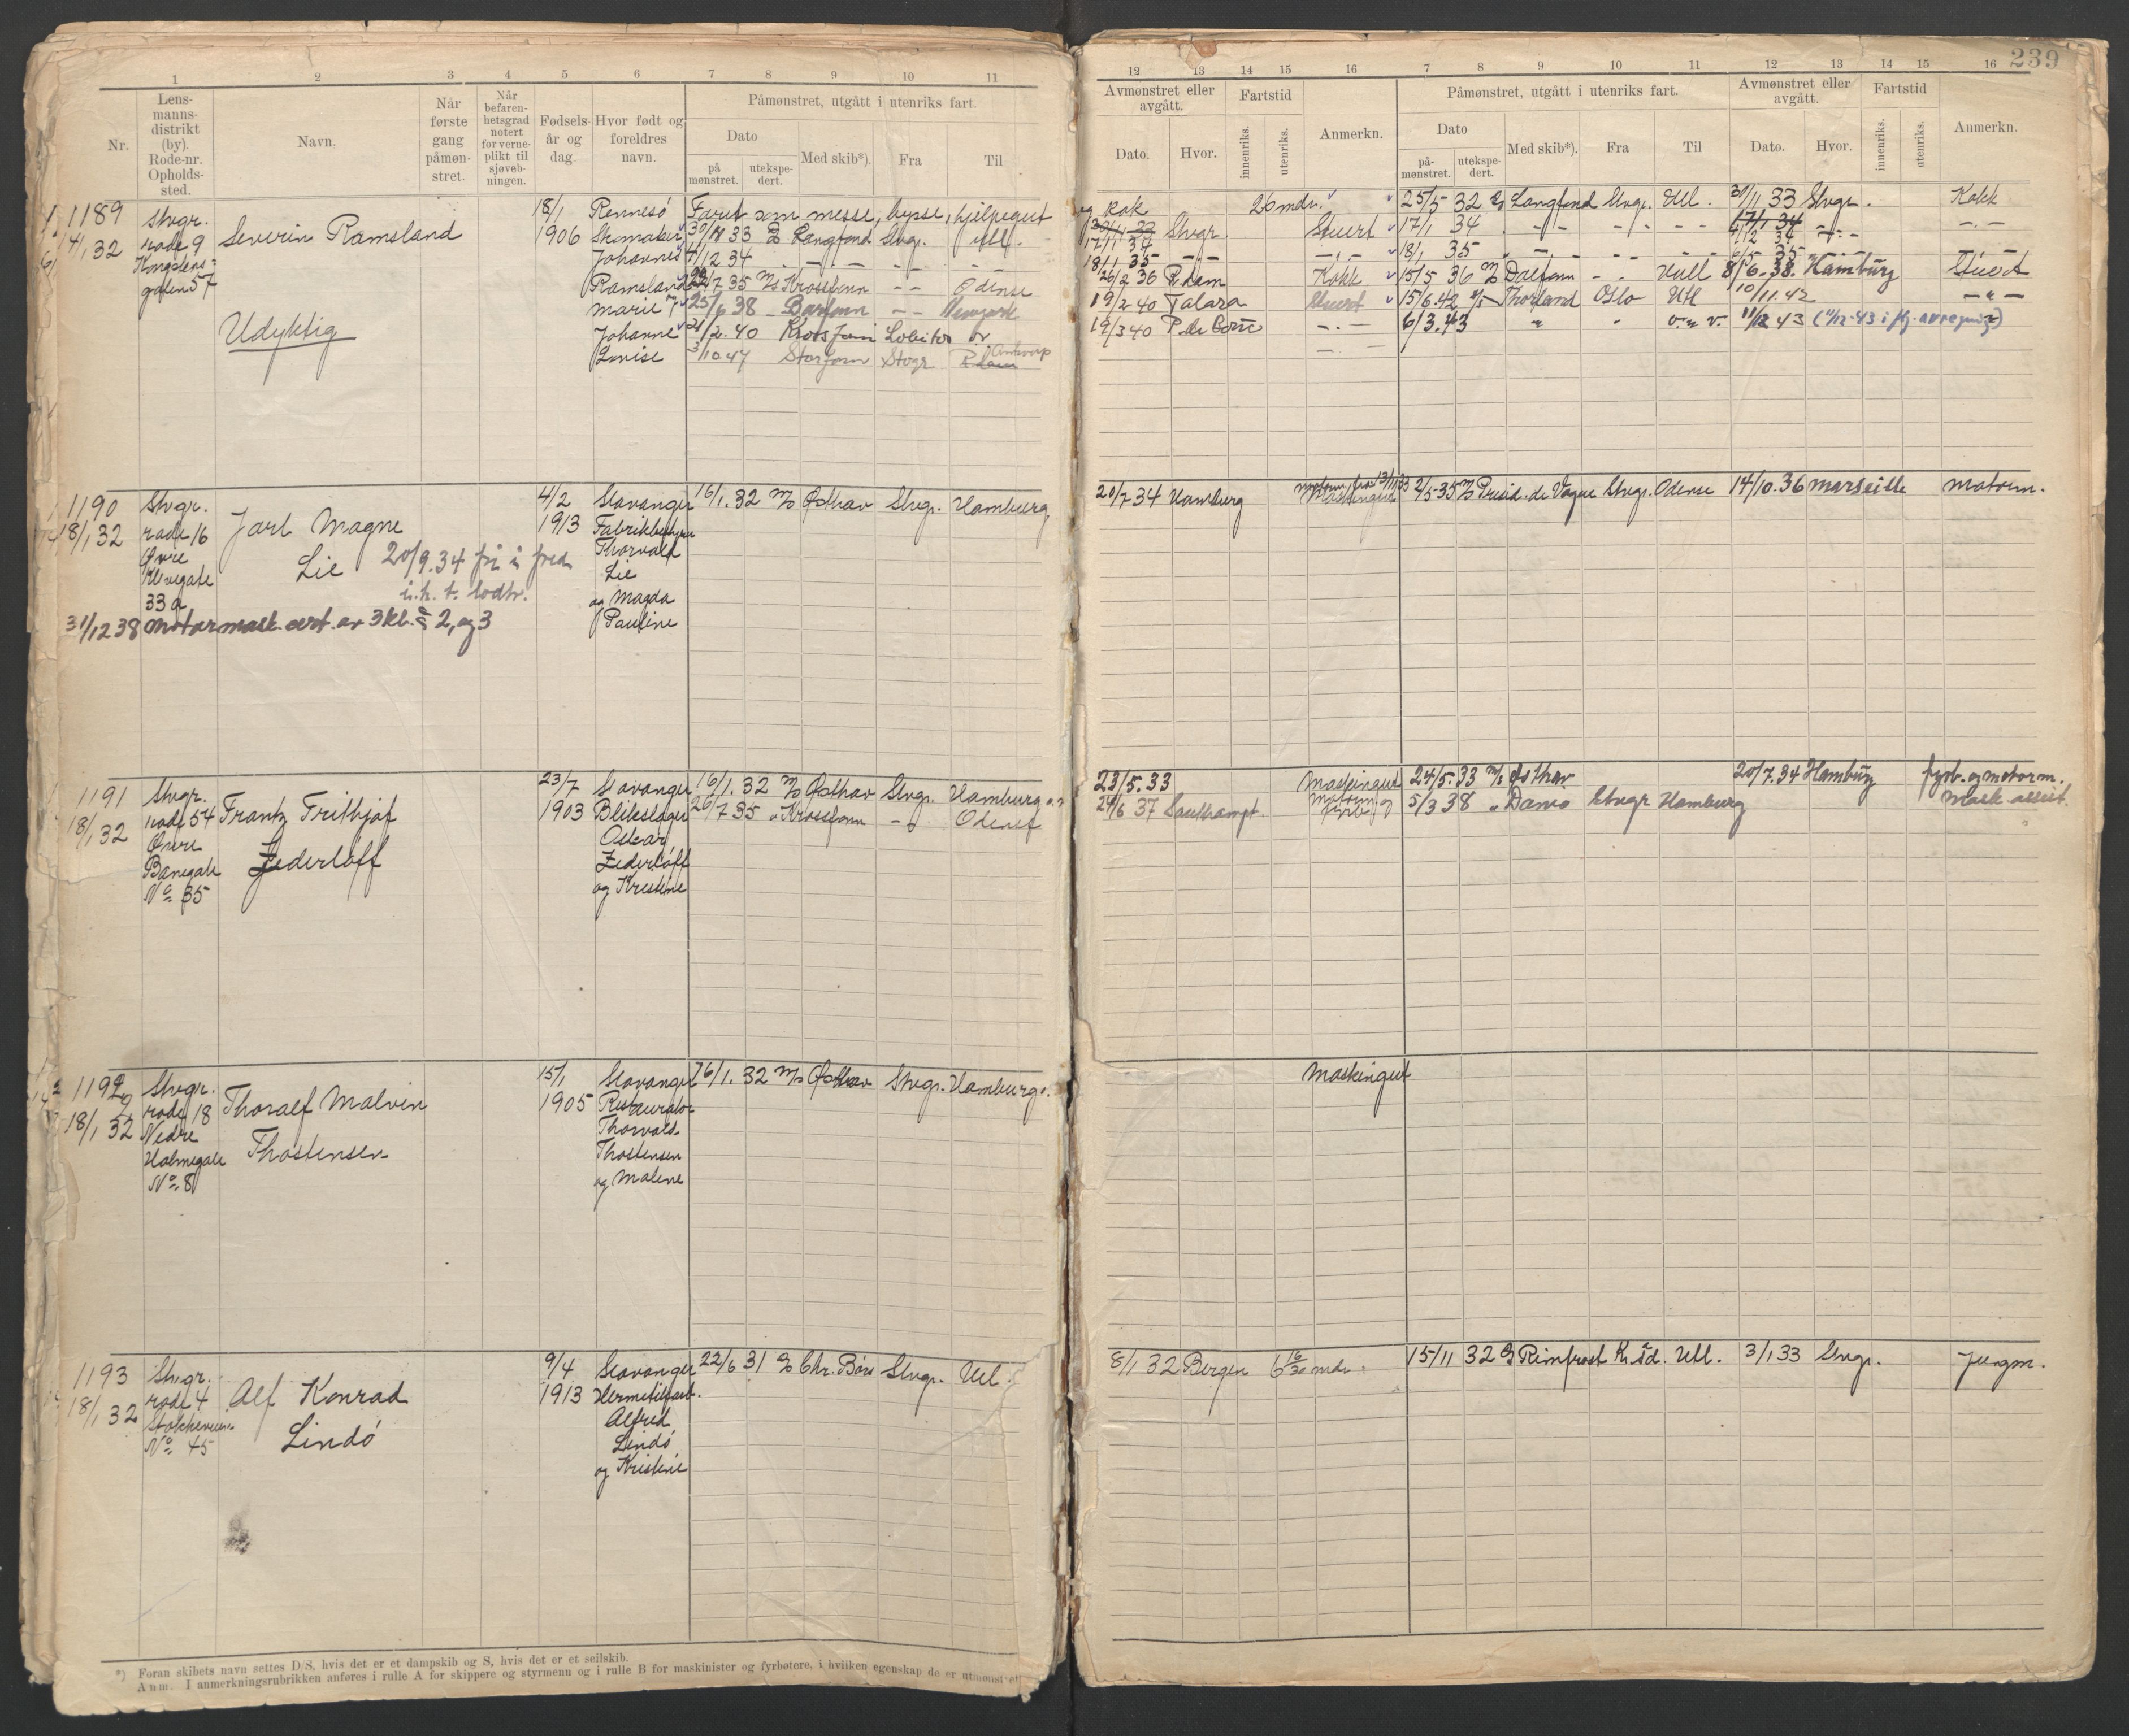 239
1 2 3 4 5 6 7 8 9 10 11
12 13 14 15 16 7 8 9 10 11 12 13 14 15 16
Nr.
Lens-
manns-
distrikt
(by).
Rode-nr.
Opholds-
sted.
Navn.
Når
første
gang
påmøn-
stret.
Når
befaren-
hetsgrad
notert
for verne-
plikt til
sjøveb-
ningen.
Fødsels-
år og
dag.
Hvor født og
foreldres
navn.
Påmønstret, utgått i utenriks fart.
Dato
på
mønstret.
utekspe-
dert.
Med skib*).
Fra
Til
Avmønstret eller
avgått.
Dato.
Hvor.
Fartstid
innenriks.
utenriks.
Anmerkn.
Påmønstret, utgått i utenriks fart.
Dato
på-
mønstret.
utekspe-
dert.
Med skib*).
Fra
Til
Avmønstret eller
avgått.
Dato.
Hvor.
Fartstid
innenriks.
utenriks.
Anmerkn.
1189
14/1 32
Stvgr.
rode 9
Kongstens-
gaten 57
Severin Ramsland
Udyktig
18/1
1906
Rennesö
Skomaker
Johannes
Ramsland
Marie
Johanne
Lovise
Faret som messe, bysse, hjelpegut
og kok 26 mdr.
33 Langfond Stvgr. Utl.
4/12 34 - - - -
/7 35 M/s Krossfonn - - Odense
25/6 38 Barfonn - - Newyork
21/2.40 Krossfonn Lobitos
3/10.47 Storfonn Stvgr Antwerp
Stvgr. Stuert
17/1 34
18/1 35 - -
26/2 36 R.dam Kokk
19/2 40 Talara Stuert
19/3 40 - . -
25/5 32 Langfond Stvgr. Utl. 30/11 33 Stvgr. Kokk
17/1 34 - - - - - - 17/1 34 - . -
18/1 35
15/5 36 M/s Dalfonn - - Hull 8/6.38. Hamburg Stuert
15/6.42 Thorland Oslo Utl 10/11.42 - " -
6/3.43 " " 11/12 43
1190
18/1 32
Stvgr.
rode 16
Øvre
Klevegate
33 a
Jarl Magne
Lie
20/9.34 fri i fred
i.h.t. lodtr.
31/12 38 Motormask. cert. av 3 kl. 2, og 3
4/2
1913
Stavanger
Fabrikbestyrer
Thorvald
Lie
og Magda
Pauline
16/1.32 M/s Østhav Stvgr. Hamburg
20/7 34 Hamburg
Maskingut
2/5 35 M/s Presid. de Vogue Stvgr. Odense 14/10.36 Marseille Motorm.
1191
18/1 32
Stvgr.
rode 54
Øvre
Banegate
No 35
Frantz Frithjof
Zederlöff
23/7
1903
Stavanger
Blikslager
Oskar
Zederløff
og Kristine
16/1.32 M/s Østhav Stvgr. Hamburg
26/7 35 Krossfonn - " Odense
23/5.33 Maskingut
24/6 37 Southampt.
24/5.33 M/s Østhav 20/7.34 Hamburg fyrb. og motorm.
5/3 38 " Dano Stvgr Hamburg Mask. assist.
1192
18/1 32
Stvgr.
rode 18
Nedre
Holmegate
No 8
Thoralf Malvin
Thostensen
15/1
1905
Stavanger
Restauratør
Thorvald
Thostensen
og Malene
16/1.32 M/s Østhav Stvgr. Hamburg
Maskingut
1193
18/1 32
Stvgr.
rode 4
Stokkeveien
No 45
Alf Konrad
Lindö
9/4
1913
Stavanger
Hermetikarb.
Alfred
Lindö
og Kristine
22/6 31 Chr. Børs Stvgr. Utl.
8/1 32 Bergen 6 16/30 mdr.
15/11 32 Rimfrost Kr.sd. Utl. 3/1 33 Stvgr. Jungm.
*) Foran skibets navn settes D/S, hvis det er et dampskib og S, hvis det er et seilskib.
Anm. I anmerkningsrubrikken anføres i rulle A for skippere og styrmenn og i rulle B for maskinister og fyrbøtere, i hvilken egenskap de er utmønstret